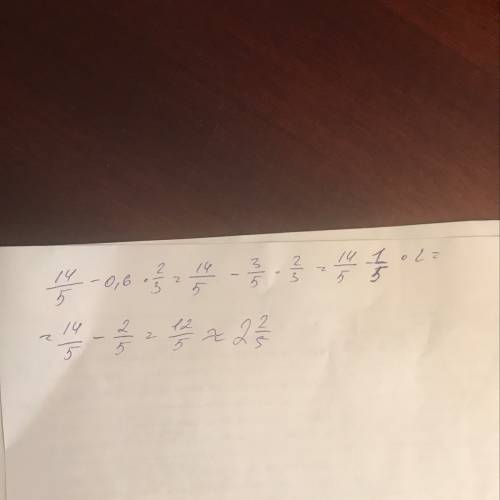 14/5 - 0,6 · 2/3 = 14/5 - 3/5 · 2/3 = 14/5 - 1/5 · 2 =
= 14/5 - 2/5 = 12/5 ≈ 2 2/5